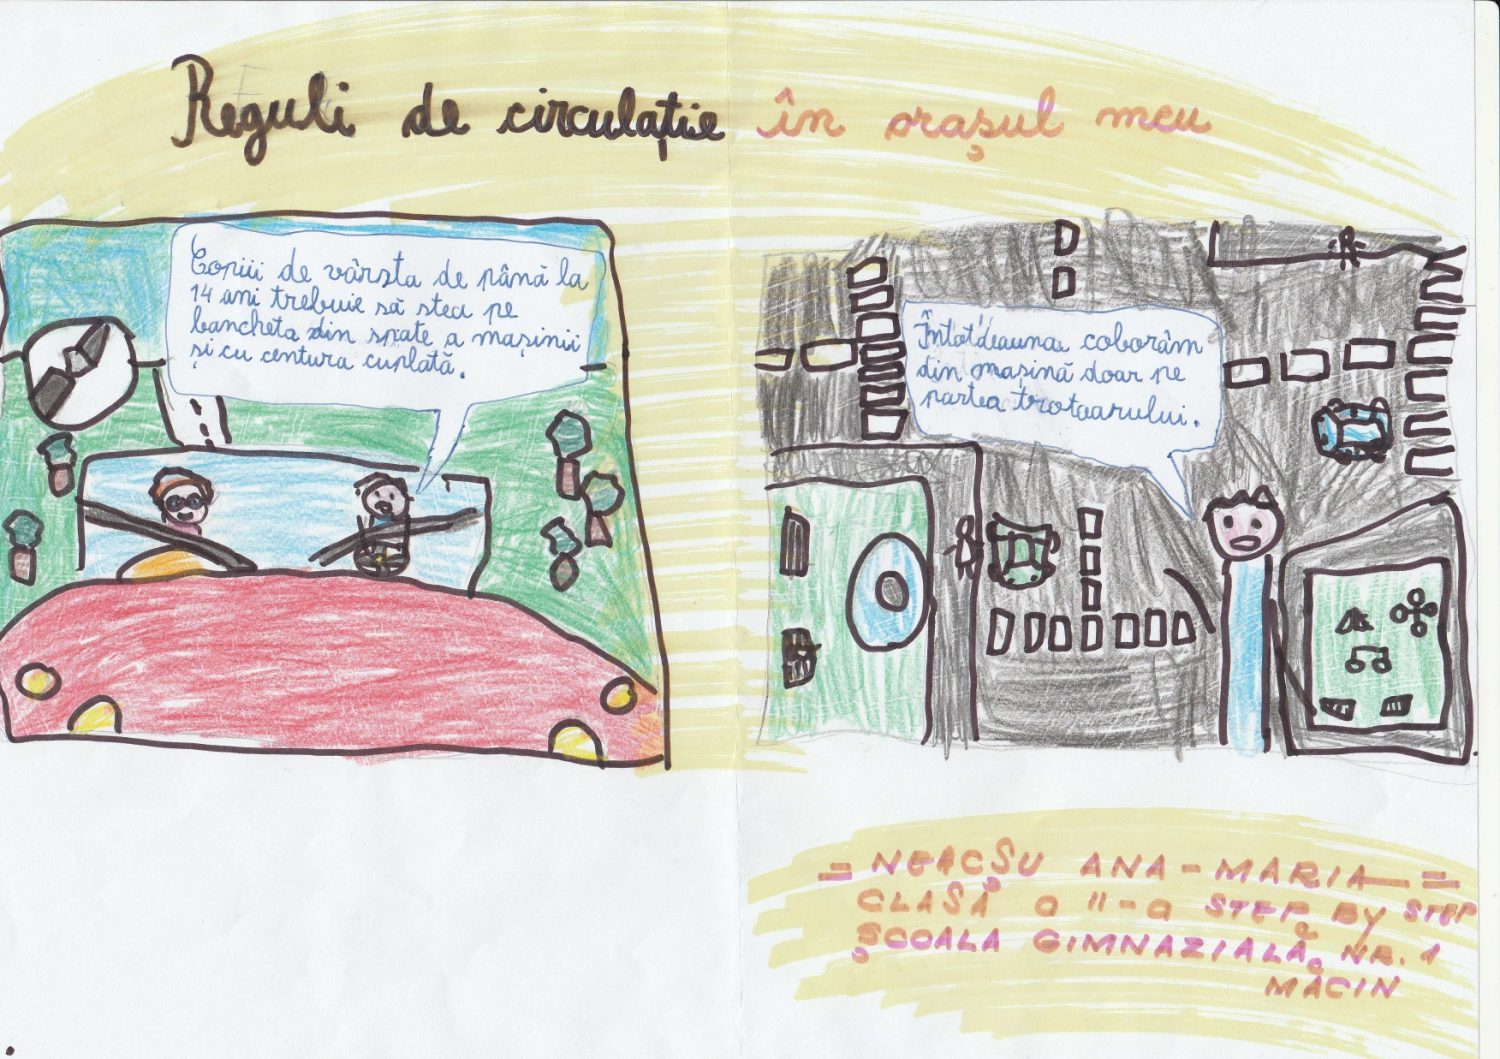 Reguli de circulație în orașul meu
Copiii de vârsta de până la
14 ani trebuie să stea pe
bancheta din spate a mașinii
și cu centura cuplată.
Întot'deauna coborâm
din mașină doar pe
partea trotoarului.
= NEACȘU ANA-MARIA =
CLASĂ a II-a STEP BY STEP
ȘCOALA GIMNAZIALĂ NR. 1
MĂCIN